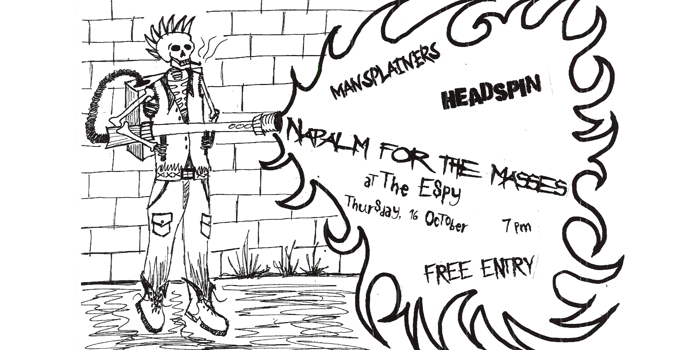 MANSPLAINERS
HEADSPIN
NAPALM FOR THE MASSES
at The Espy
Thursday, 16 October
7pm
FREE ENTRY